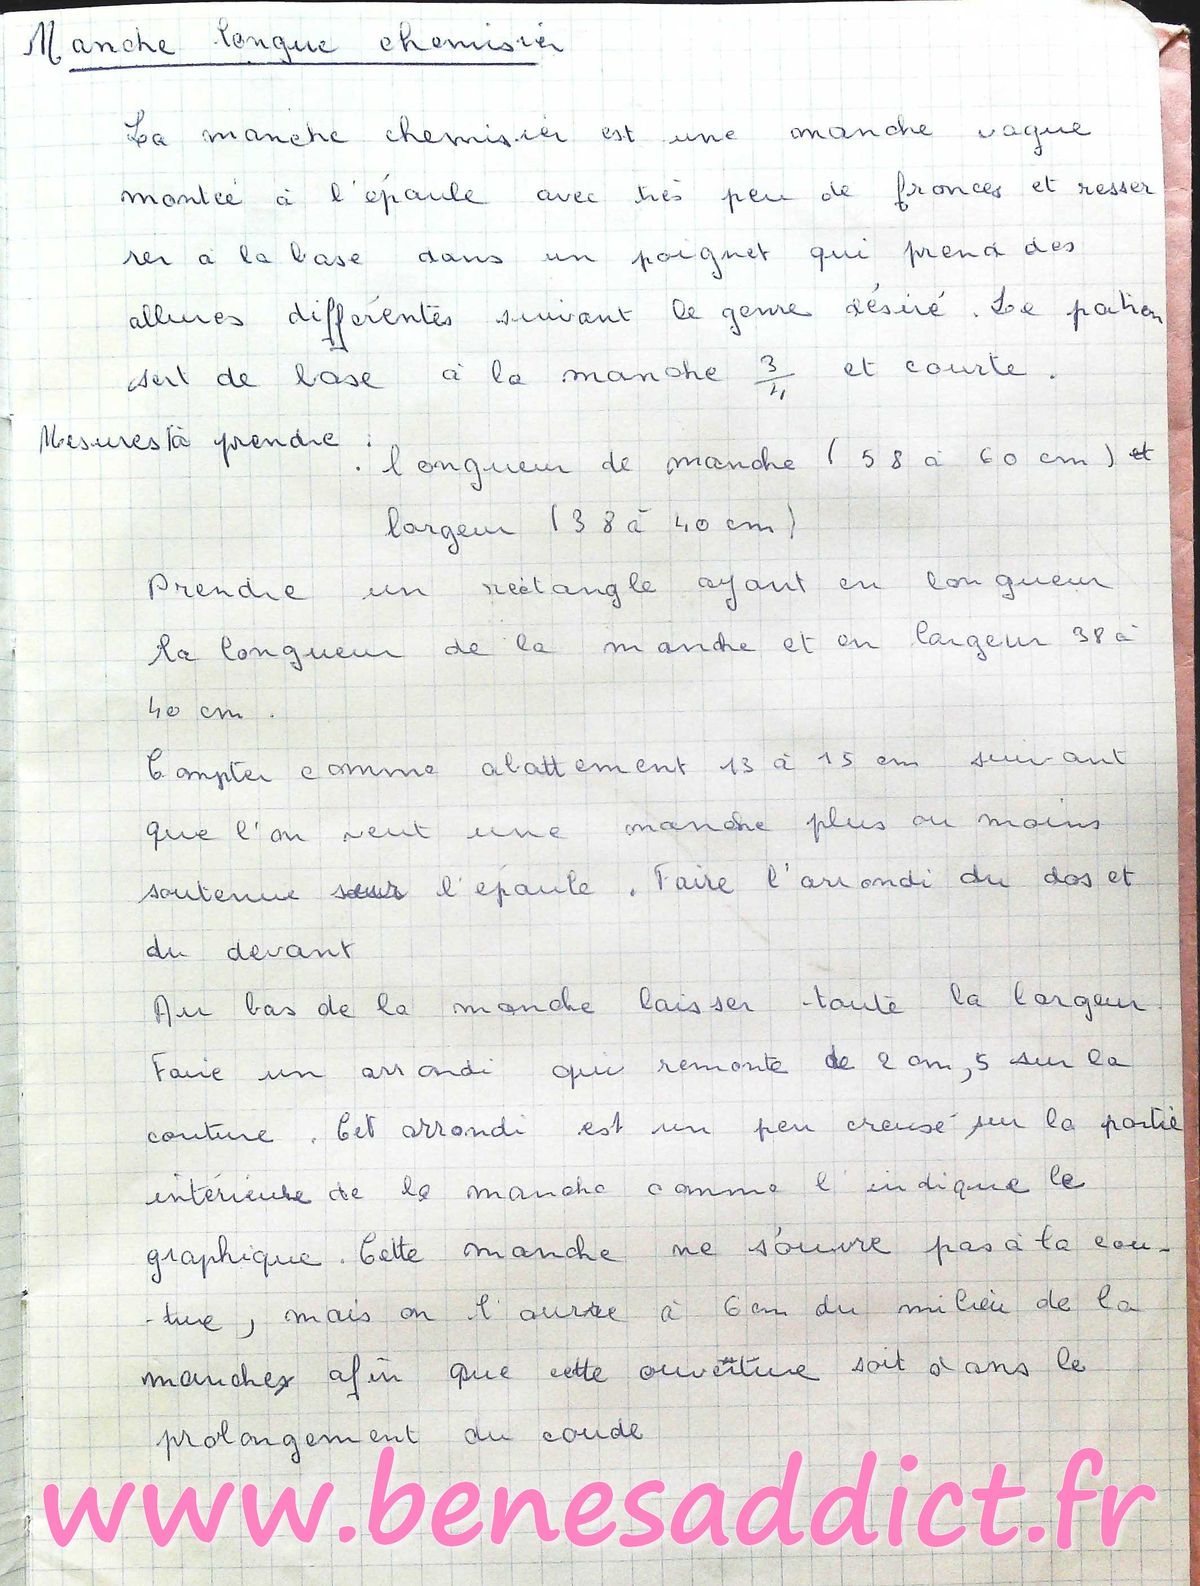 Manche longue chemisier
La manche chemisier est une manche vague
montée à l'épaule avec très peu de fronces et resser
rer à la base dans un poignet qui prend des
allures différentes suivant le genre désiré. Le patron
sert de base à la manche 3/4 et courte.
Mesures à prendre :
. longueur de manche (58 à 60 cm) et
largeur (38 à 40 cm)
Prendre un rectangle ayant en longueur
la longueur de la manche et en largeur 38 à
40 cm.
Compter comme abattement 13 à 15 cm suivant
que l'on veut une manche plus ou moins
soutenue sur l'épaule. Faire l'arrondi du dos et
du devant
Au bas de la manche laisser toute la largeur.
Faire un arrondi qui remonte de 2 cm,5 sur la
couture. Cet arrondi est un peu creusé sur la partie
intérieure de la manche comme l'indique le
graphique. Cette manche ne s'ouvre pas à la cou-
-ture, mais on l'ouvre à 6 cm du milieu de la
manche afin que cette ouverture soit dans le
prolongement du coude
www.benesaddict.fr